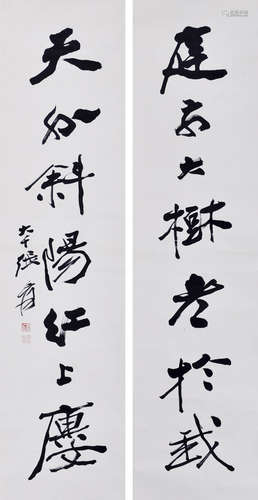 庭前大樹老於我
天外斜陽紅上樓
大千張爰